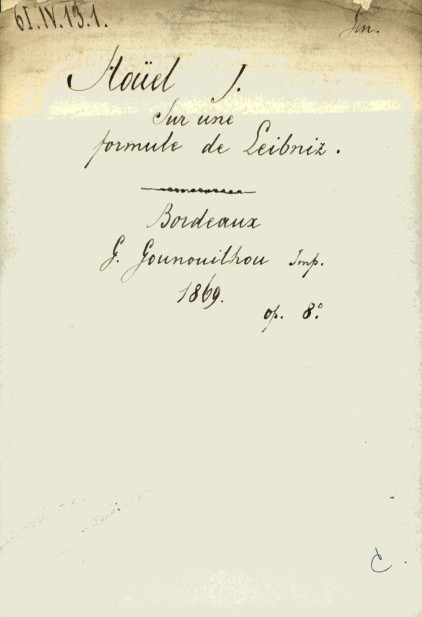 61.IV.13.1.
Hoüel J.
Sur une
formule de Leibniz.
Bordeaux
G. Gounouilhou Imp.
1869.
op. 8°
C